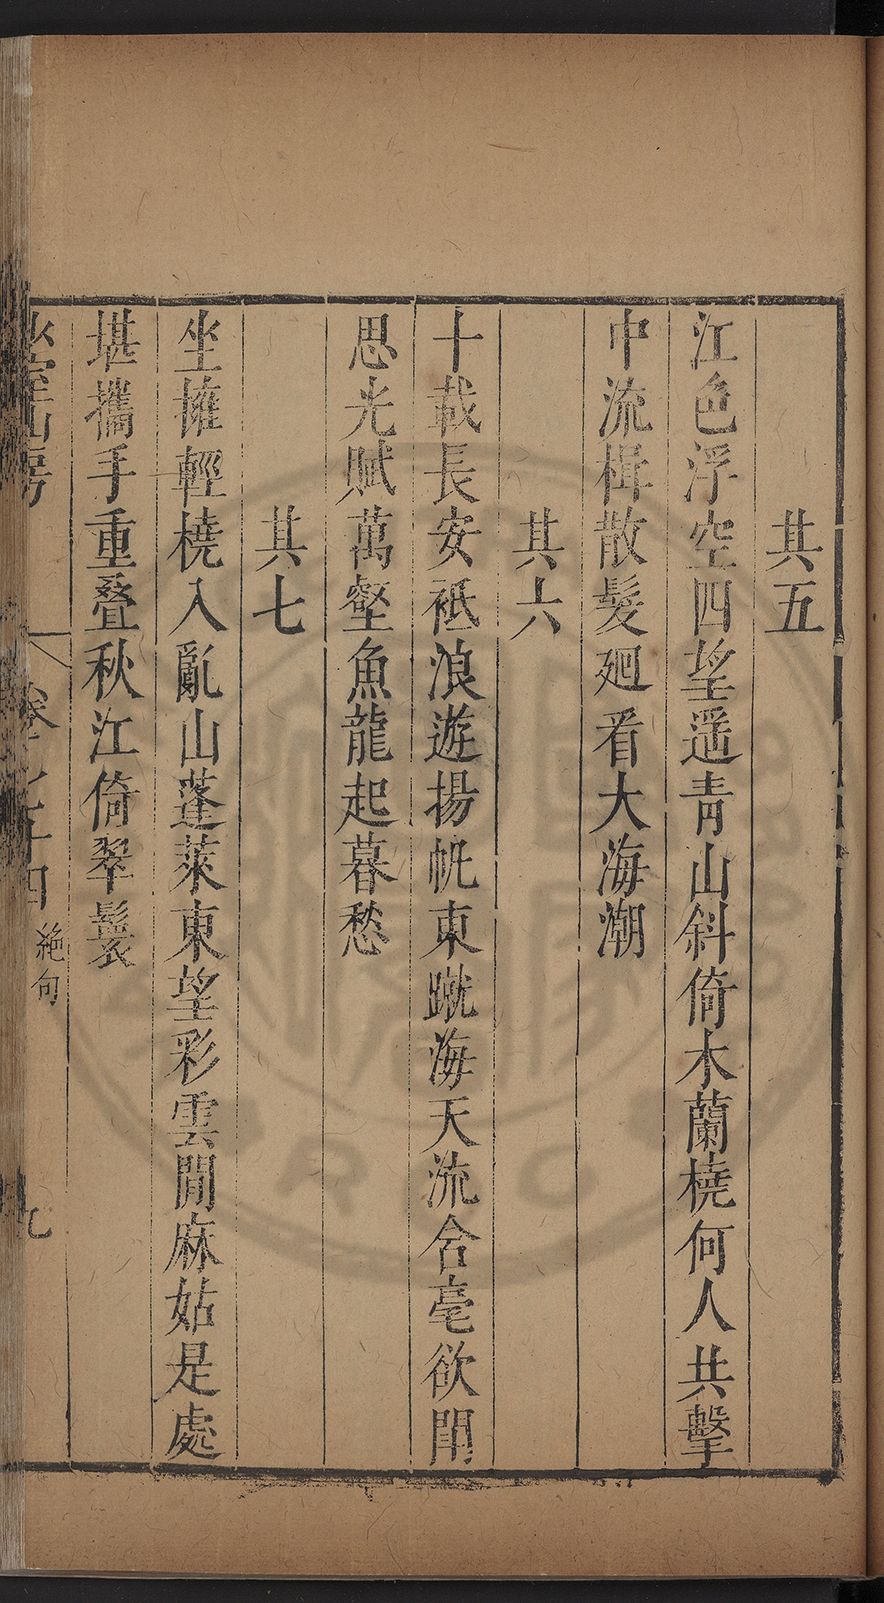 其五
江色浮空四望遥青山斜倚木蘭橈何人共擊
中流楫散髮廻看大海潮
其六
十載長安祗浪遊揚帆東蹴海天流含毫欲
思光賦萬壑魚龍起暮愁
其七
坐擁輕橈入亂山蓬萊東望彩雲間麻姑是處
堪攜手重疊秋江倚翠鬟
少室山房
卷七十四 絶句
九